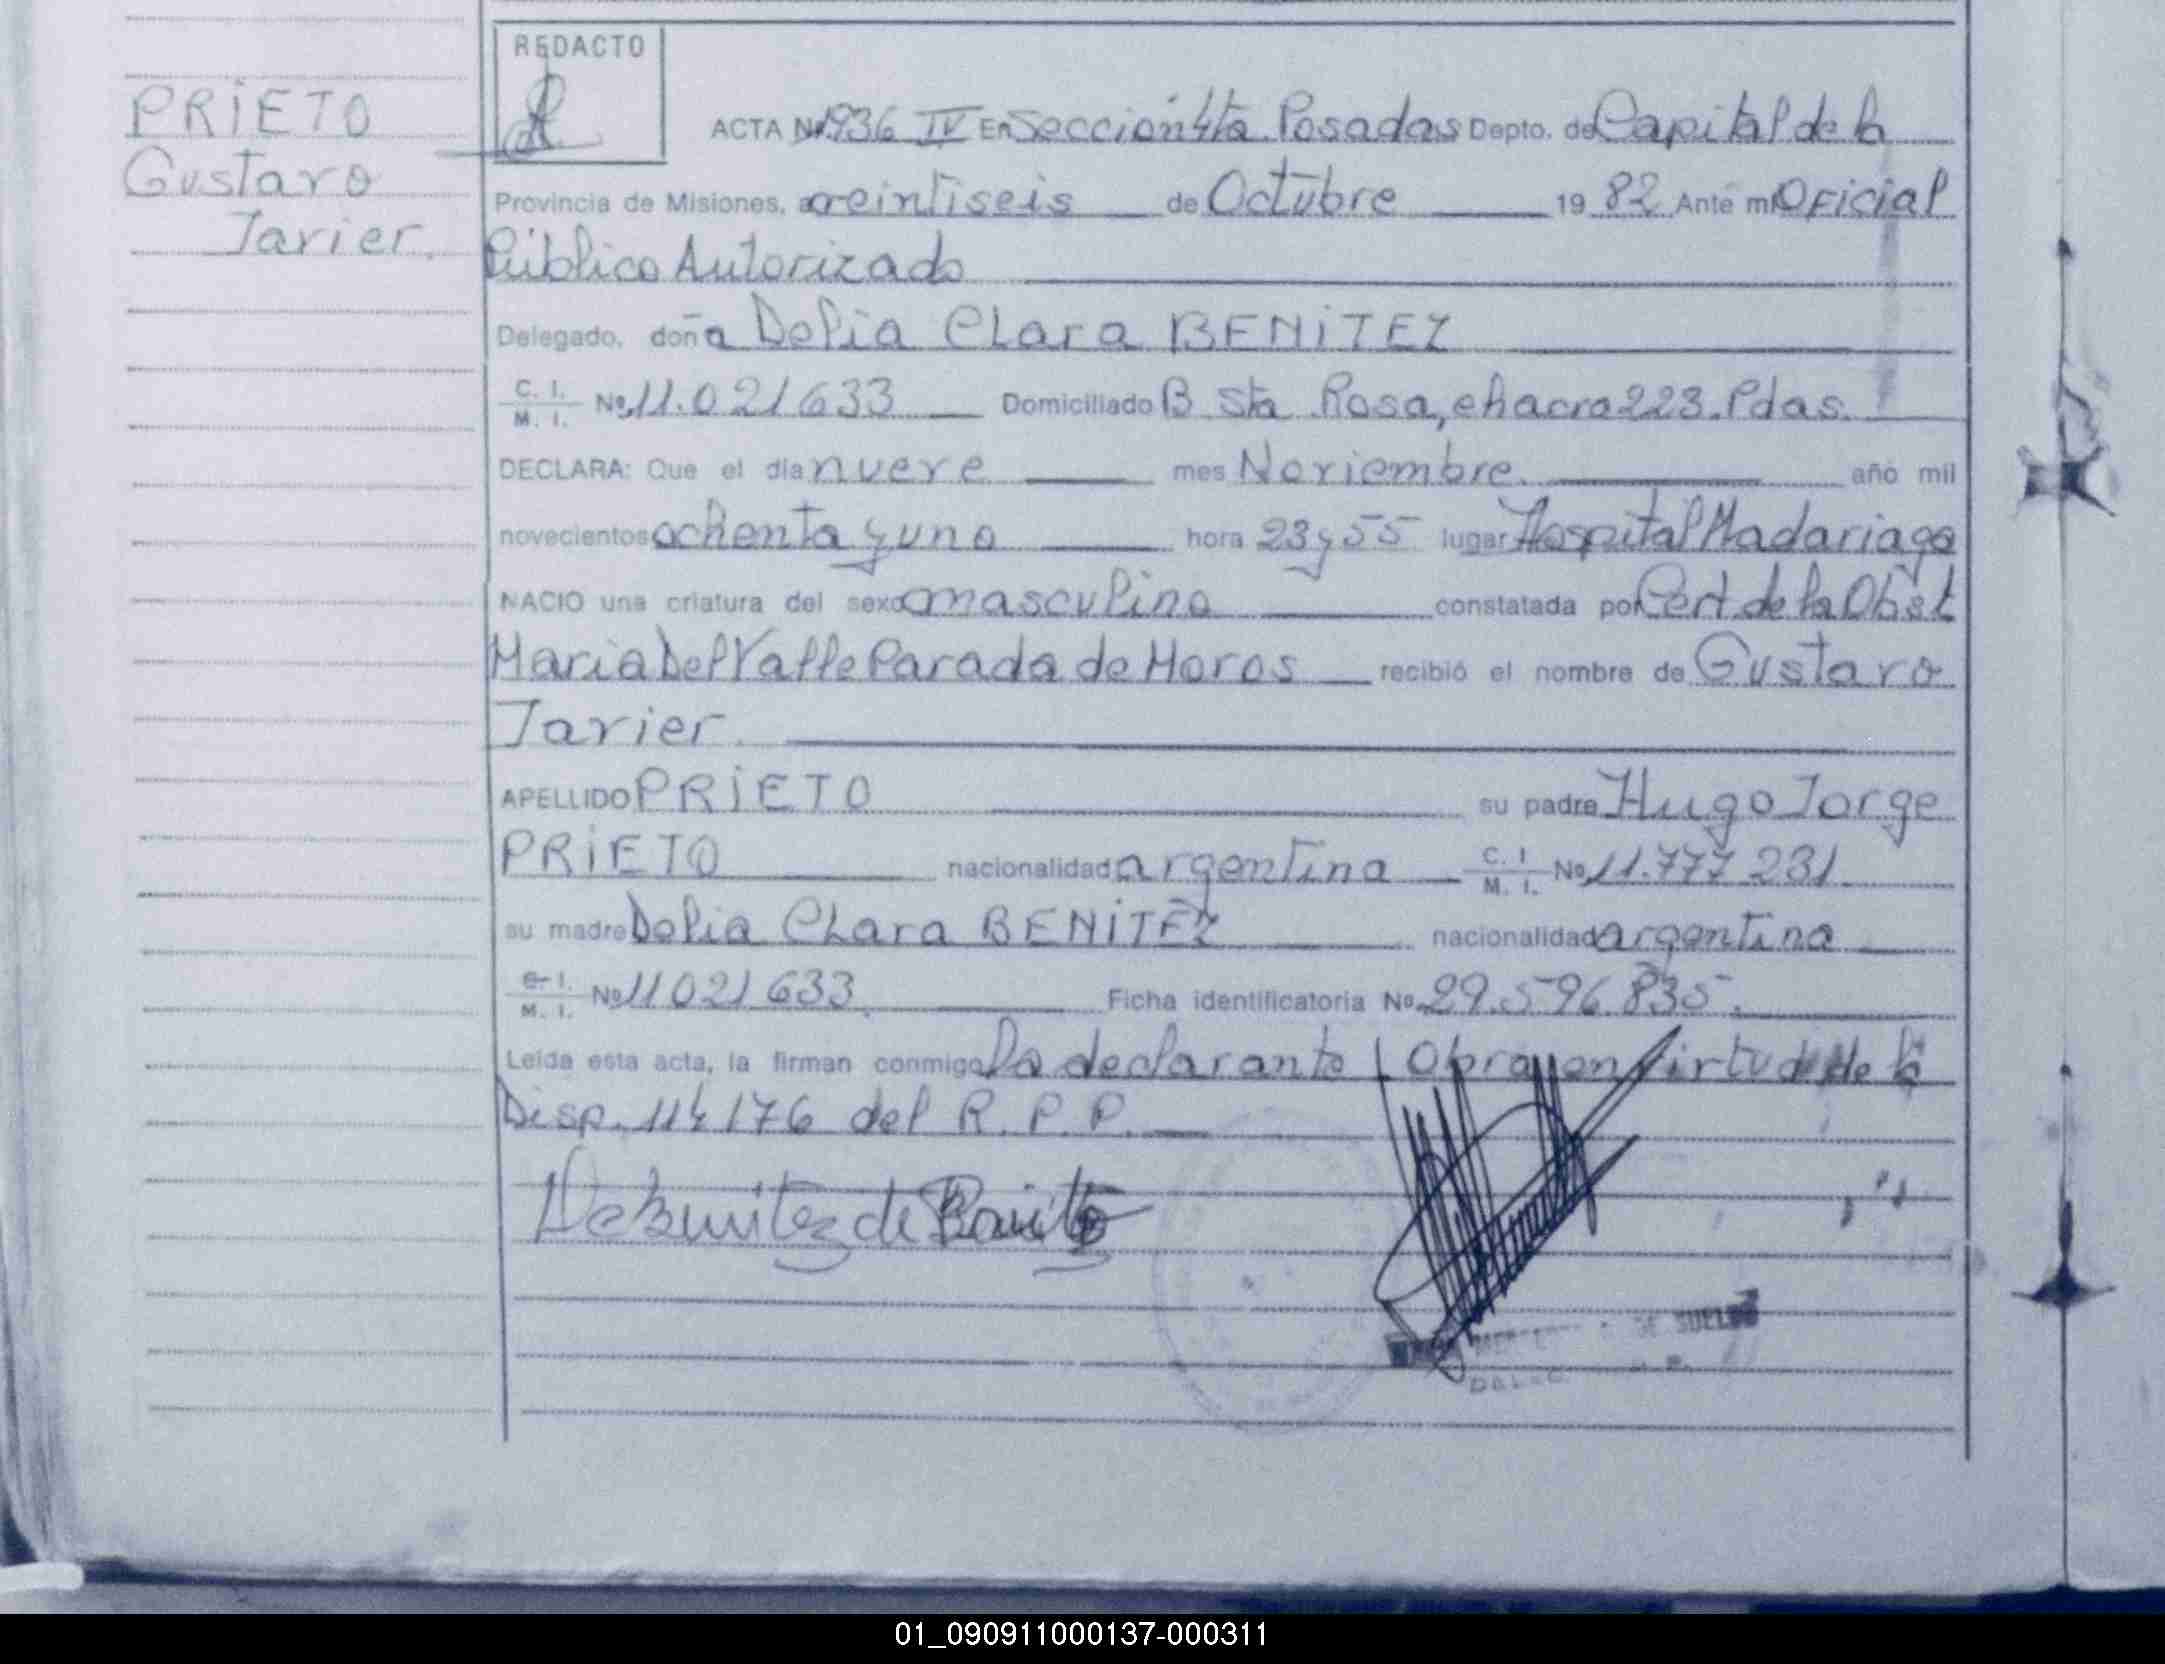 REDACTO
PRIETO
Gustavo
Javier.
ACTA Nº 1936 IV En Sección 4ta Posadas Depto. de Capital de la
Provincia de Misiones, a veintiseis de Octubre 19 82 Ante mi Oficial
Público Autorizado
Delegado, doña Delia Clara BENiTEZ
C. I. M. I. Nº 11.021633 Domiciliado B Sta Rosa, chacra 223. Pdas.
DECLARA: Que el dia nueve mes Noviembre. año mil
novecientos ochenta y uno hora 23 y 55 lugar Hospital Madariaga
NACIO una criatura del sexo masculino constatada por Cert. de la Obst
Maria Del Valle Parada de Moros recibió el nombre de Gustavo
Javier.
APELLIDO PRiETO su padre Hugo Jorge
PRiETO nacionalidad argentina C. I M. I. Nº 11.777 231
su madre Delia Clara BENiTEZ nacionalidad argentina
C. I. M. I. Nº 11021633. Ficha identificatoria Nº 29.596.835.
Leida esta acta, la firman conmigo la declarante Obra en virtud de la
Disp. 114176 del R. P. P.
de
DE SUELDO
01_090911000137-000311